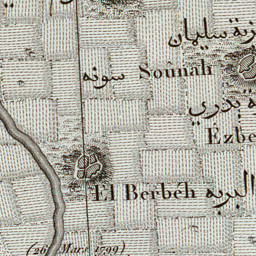 زبة سليمان
سونه Soûnah
ة بدري
Ezbe
El Berbêh البربه
(26 Mars 1799)